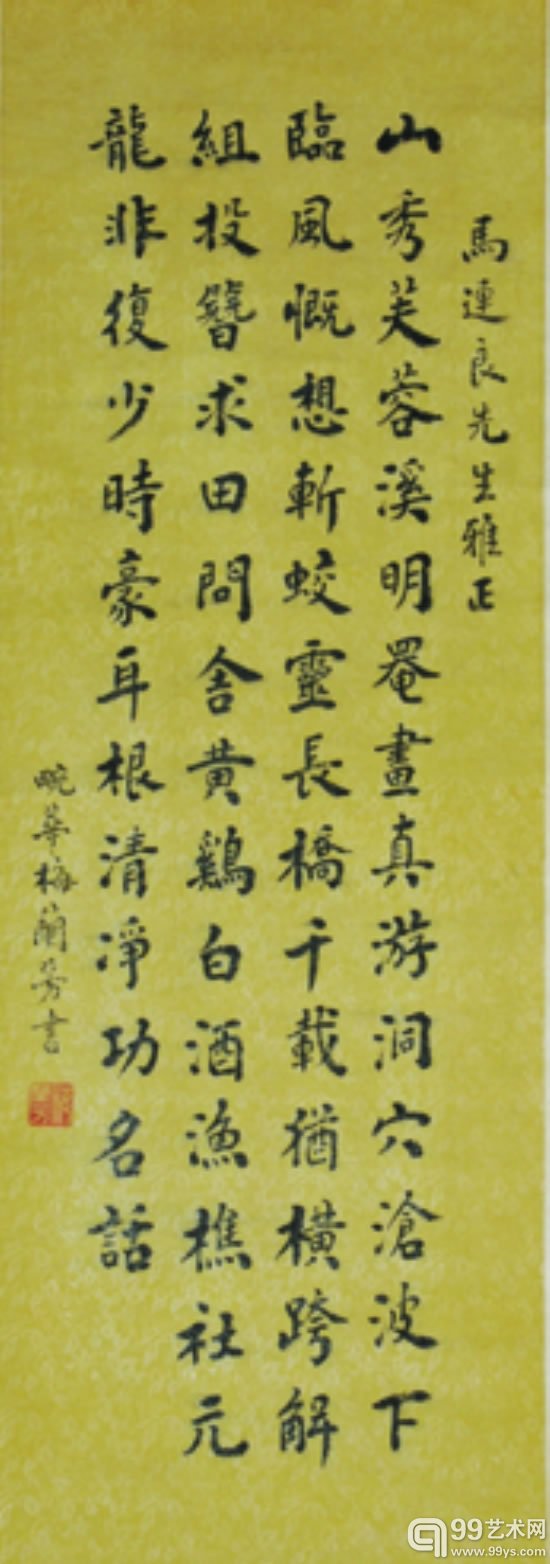 馬連良先生雅正
山秀芙蓉溪明罨畫真游洞穴滄波下
臨風慨想斬蛟靈長橋千載猶橫跨解
組投簪求田問舍黄鷄白酒漁樵社元
龍非復少時豪耳根清凈功名話
畹華梅蘭芳書
99艺术网
www.99ys.com